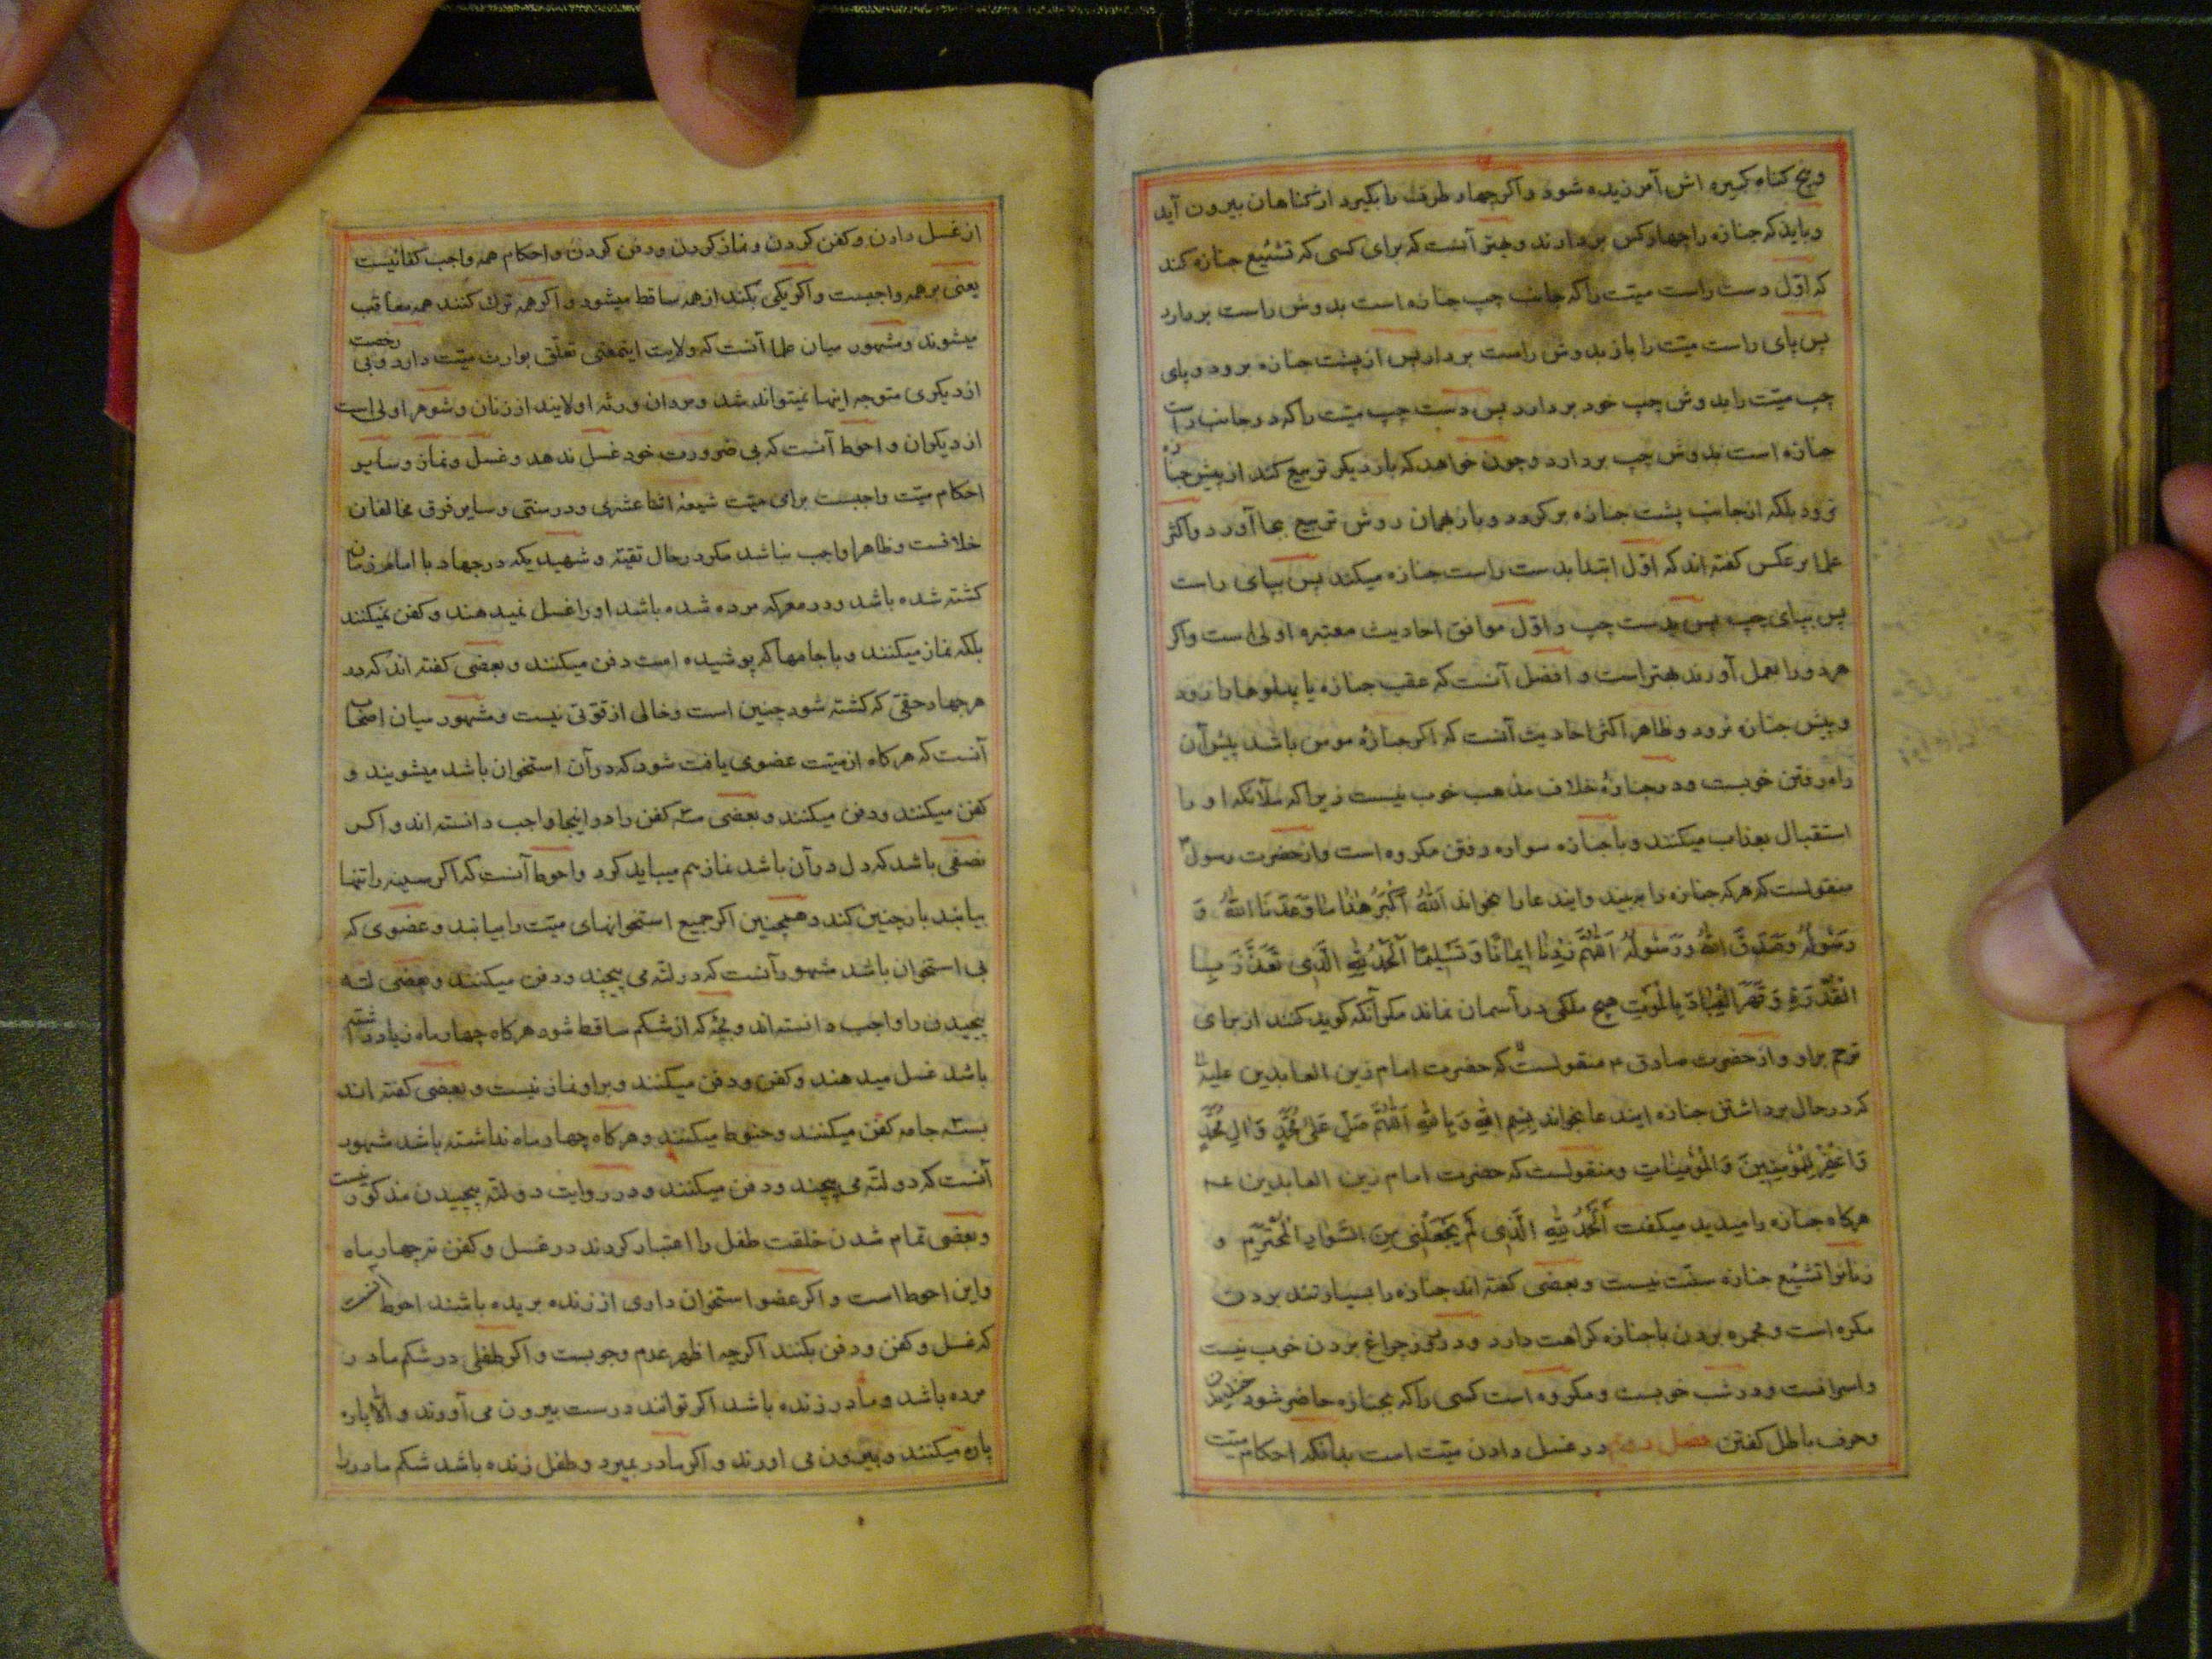 و پنج کناه کبیره اش آمرزیده شود و اکر چهار طرف را بکیرد از کناهان بیرون آید
و باید که جنازه را چهار کس بردارند و بهتر آنست که برای کسی که تشییع جنازه کند
که اوّل دست راست میّت را که جانب چپ جنازه است بدوش راست بردارد
پس پای راست میّت را باز بدوش راست بردارد پس از پشت جنازه برود و پای
چپ میّت را بدوش چپ خود بردارد پس دست چپ میّت را که در جانب راست
جنازه است بدوش چپ بردارد و چون خواهد که بار دیکر تربیع کند از پیش جنازه
نرود بلکه از جانب پشت جنازه برکردد و باز بهمان روش تربیع بجا آورد و اکثر
علما برعکس کفته اند که اوّل ابتدا بدست راست جنازه میکند پس بپای راست
پس بپای چپ پس بدست چپ و اوّل موافق احادیث معتبره اولی است و اکر
هر دو را بعمل آورند بهتر است و افضل آنست که عقب جنازه یا پهلوها راه رود
و پیش جنازه نرود و ظاهر اکثر احادیث آنست که اکر جنازهٔ مومن باشد پیش آن
راه رفتن خوبست و در جنازهٔ خلاف مذهب خوب نیست زیرا که ملائکه او را
استقبال بعذاب میکنند و با جنازه سواره رفتن مکروه است و از حضرت رسول
منقولست که هر که جنازه را به بیند و ایندعا را بخواند اَللّٰهُ اَکْبَرُ هٰذٰا مٰا وَعَدَنَا اللّٰهُ وَ
رَسُولُهُ وَصَدَقَ اللّٰهُ وَرَسُولُهُ اَللّٰهُمَّ زِدْنٰا اِیمٰانًا وَتَسْلِیمًا اَلْحَمْدُ لِلّٰهِ الَّذِی تَعَزَّزَ بِـ
الْقُدْرَةِ وَقَهَرَ الْعِبٰادَ بِالْمَوْتِ هیچ ملکی در آسمان نماند مکر آنکه کوید کنند از برای
ترحم بر او و از حضرت صادق ع منقولست که حضرت امام زین العابدین علیه
که در حال برداشتن جنازه ایندعا بخواند بِسْمِ اللّٰهِ وَبِاللّٰهِ اَللّٰهُمَّ صَلِّ عَلیٰ مُحَمَّدٍ وَاٰلِ مُحَمَّدٍ
وَاغْفِرْ لِلْمُؤْمِنِینَ وَالْمُؤْمِنٰاتِ و منقولست که حضرت امام زین العابدین ع
هرکاه جنازه را میدید میکفت اَلْحَمْدُ لِلّٰهِ الَّذِی لَمْ یَجْعَلْنِی مِنَ السَّوٰادِ الْمُخْتَرَمِ و
زنانرا تشییع جنازه سنّت نیست و بعضی کفته اند جنازه را بسیار تند بردن
مکره است و مجمره بردن با جنازه کراهت دارد و در روز چراغ بردن خوب نیست
و اسرافست و در شب خوبست و مکروه است کسی را که بجنازه حاضر شود خندیدن
و حرف باطل کفتن فصل در غسل دادن میّت است بدانکه احکام میّت
از غسل دادن و کفن کردن و نماز کردن و دفن کردن و احکام همه واجب کفائیست
یعنی بر همه واجبست و اکر یکی بکند از همه ساقط میشود و اکر همه ترک کنند همه معاقب
میشوند و مشهور میان علما آنست که ولایت اینمعنی تعلّق بوارث میّت دارد و بی رخصت
از دیکری متوجه اینها نمیتواند شد و مردان ورثه اولایند از زنان و شوهر اولی است
از دیکران و احوط آنست که بی ضرورت خود غسل ندهد و غسل و نماز و سایر
احکام میّت واجبست برای میّت شیعهٔ اثنا عشری و در سنّتی و سایر فرق مخالفان
خلافست و ظاهرا واجب نباشد مکر در حال تقیّه و شهیدیکه در جهاد با امام زمان
کشته شده باشد و در معرکه مرده شده باشد او را غسل نمیدهند و کفن نمیکنند
بلکه نماز میکنند و با جامها که پوشیده است دفن میکنند و بعضی کفته اند که در
هر جهاد حقی که کشته شود چنین است و خالی از قوّتی نیست و مشهور میان اصحاب
آنست که هرکاه از میّت عضوی یافت شود که در آن استخوان باشد میشویند و
کفن میکنند و دفن میکنند و بعضی سه کفن را در اینجا واجب دانسته اند و اکر
نصفی باشد که دل در آن باشد نماز هم میباید کرد و احوط آنست که اکر سینه را تنها
بیابند باز چنین کند و همچنین اکر جمیع استخوانهای میّت را بیابند و عضوی که
بی استخوان باشد مشهور آنست که در لته می پیچند و دفن میکنند و بعضی لته
پیچیدن را واجب دانسته اند و بچّه که از شکم ساقط شود هرکاه چهار ماه زیاد داشته
باشد غسل میدهند و کفن و دفن میکنند و بر او نماز نیست و بعضی کفته اند
بسه جامه کفن میکنند و حنوط میکنند و هرکاه چهار ماه نداشته باشد مشهور
آنست که در لته می پیچند و دفن میکنند و در روایت در لته پیچیدن مذکور نیست
و بعضی تمام شدن خلقت طفل را اعتبار کردند در غسل و کفن نه چهار ماه
و این احوط است و اکر عضو استخوان داری از زنده بریده باشند احوط آنست
که غسل و کفن و دفن بکنند اکرچه اظهر عدم وجوبست و اکر طفلی در شکم مادر
مرده باشد و مادر زنده باشد اکر توانند درست بیرون می آورند و الّا پاره
پاره میکنند و بیرون می اورند و اکر مادر بمیرد و طفل زنده باشد شکم مادر را